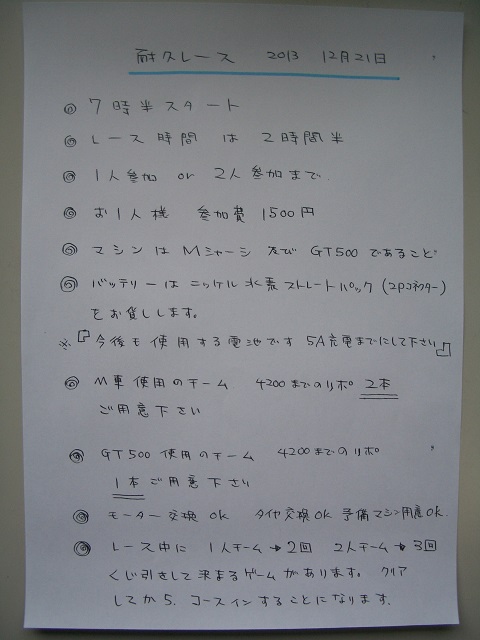 耐久レース 2013 12月21日
◎ 7時半スタート
◎ レース時間 は 2時間半
◎ 1人参加 or 2人参加まで.
◎ お1人様 参加費 1500円
◎ マシンは Mシャーシ 及び GT500 であること
◎ バッテリーは ニッケル水素ストレートパック (2Pコネクター)
をお貸しします。
※『今後も使用する電池です 5A充電までにして下さい』
◎ M車使用のチーム 4200までのリポ 2本
ご用意下さい
◎ GT500 使用のチーム 4200までのリポ
1本ご用意下さい
◎ モーター交換OK タイヤ交換OK 予備マシン用意OK.
◎ レース中に 1人チーム→2回 2人チーム→3回
くじ引きをして決まるゲームがあります。 クリア
してから、コースインすることになります.